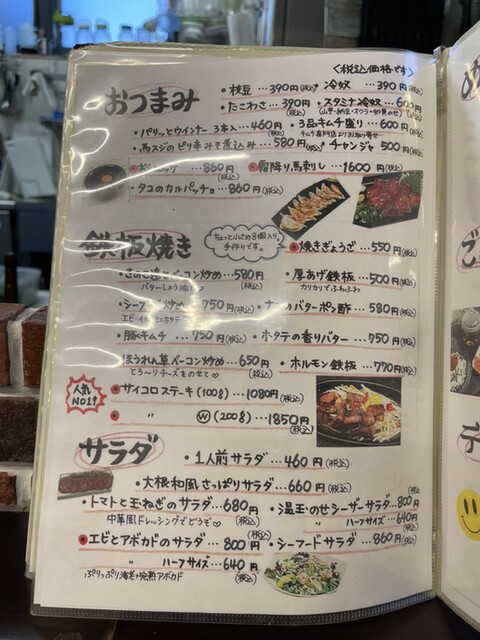 〈税込価格です〉
おつまみ
・枝豆…390円(税込) ・冷奴…390円(税込)
・たこわさ…390円(税込) ・スタミナ冷奴…600円(税込)
・パリッとウインナー 3本入…460円(税込) ・3品キムチ盛り…600円(税込)
キムチ専門店よりお取寄せ
・雨スジのピリ辛みそ煮込み…580円(税込) ・チャンジャ 500円(税込)
…860円(税込) 霜降り馬刺し…1600円(税込)
・タコのカルパッチョ…860円(税込)
鉄板焼き
ちょっと小さめ8個入り。手作りです。
焼きぎょうざ…550円(税込)
ベーコン炒め…580円(税込) ・厚あげ鉄板…500円(税込)
バターしょう油 カリカリでふわふわ
・シーフード炒め…750円(税込) ・ナスのバターポン酢…580円(税込)
・豚キムチ…750円(税込) ・ホタテの香りバター…750円(税込)
ほうれん草ベーコン炒め…650円(税込) ・ホルモン鉄板…770円(税込)
とろ〜りチーズをのせて♡
人気NO1!
サイコロステーキ(100g)…1080円(税込)
〃 W(200g)…1850円(税込)
サラダ
・1人前サラダ…460円(税込)
・大根和風さっぱりサラダ…660円(税込)
・トマトと玉ねぎのサラダ…680円(税込) ・温玉のせシーザーサラダ…800円(税込)
中華風ドレッシングでどうぞ♡ 〃 ハーフサイズ…640円(税込)
・エビとアボカドのサラダ…800円(税込) ・シーフードサラダ…860円(税込)
〃 ハーフサイズ…640円(税込)
ぷりっぷり海老+完熟アボカド